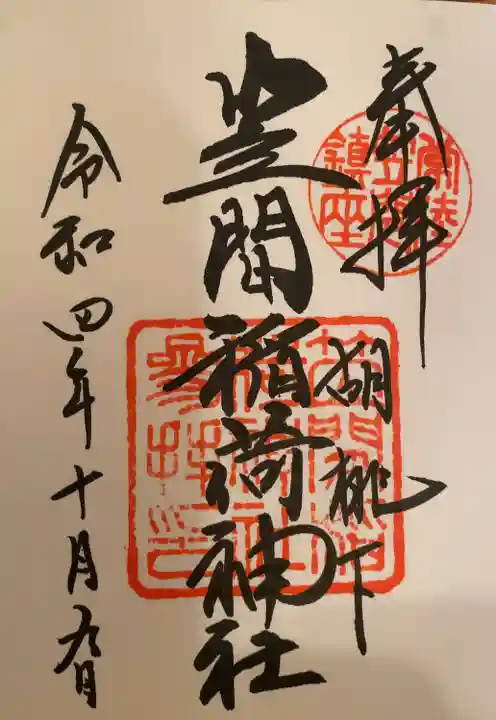 奉拝
胡桃下
笠間稲荷神社
令和四年十月九日